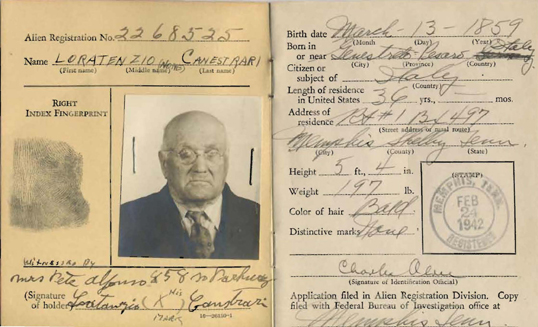 Alien Registration No. 2268525
Name LORATENZIO (NONE) CANESTRARI
(First name) (Middle name) (Last name)
RIGHT
INDEX FINGERPRINT
Witnessed By
Mrs Pete Alfonso 858 No
(Signature
of holder) (X His) Canestrari
Mark
16—26150-1
Birth date March - 13 - 1859
(Month (Day) (Year)
Born in
or near Italy
(City) (Province) (Country)
Citizen or
subject of Italy
(Country)
Length of residence
in United States 36 yrs., mos.
Address of
residence Rt #1 Bx 497
(Street address or rural route)
Memphis Shelby Tenn.
(City) (County) (State)
Height 5 ft., 4 in.
Weight 197 lb.
Color of hair Bald
Distinctive marks None
(STAMP)
MEMPHIS, TENN.
FEB
24
1942
REGISTERED
Charlie
(Signature of Identification Official)
Application filed in Alien Registration Division. Copy
filed with Federal Bureau of Investigation office at
Memphis Tenn